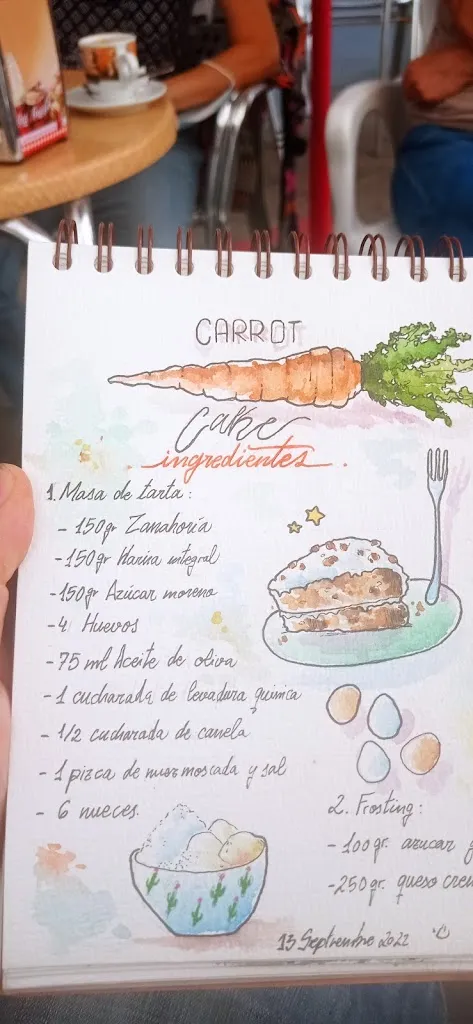 CARROT
Cake
ingredientes
1. Masa de tarta:
- 150gr Zanahoria
- 150gr Harina integral
- 150gr Azúcar moreno
- 4 Huevos
- 75 ml Aceite de oliva
- 1 cucharada de levadura química
- 1/2 cucharada de canela
- 1 pizca de nuez moscada y sal
- 6 nueces.
2. Frosting:
- 100gr. azucar
- 250gr. queso crem
13 Septiembre 2022